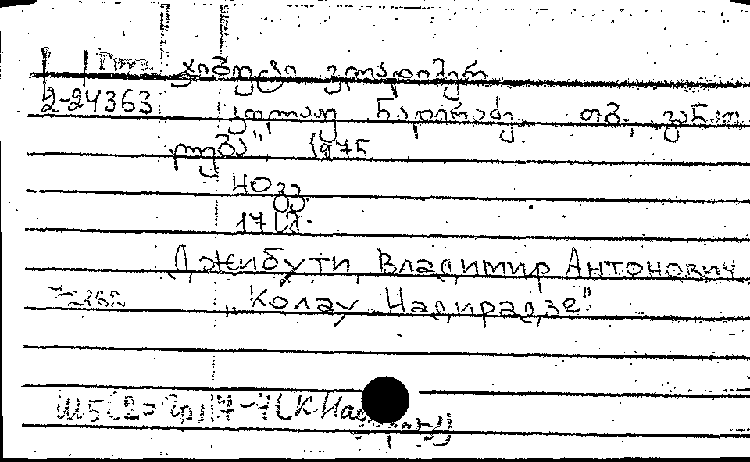 ჯიბუტი ვლადიმერ
2-24363
კოლაუ ნადირაძე. თბ., განათ
ლება", 1975
40 გვ.
17 სმ.
Джибути, Владимир Антонович
"Колау Надирадзе"